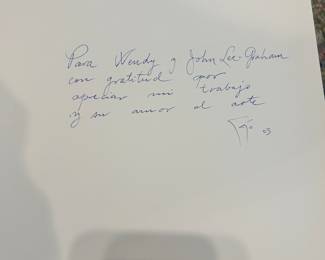 Para Wendy y John Lee-Graham
con gratitud por
apreciar mi trabajo
y su amor al arte
03